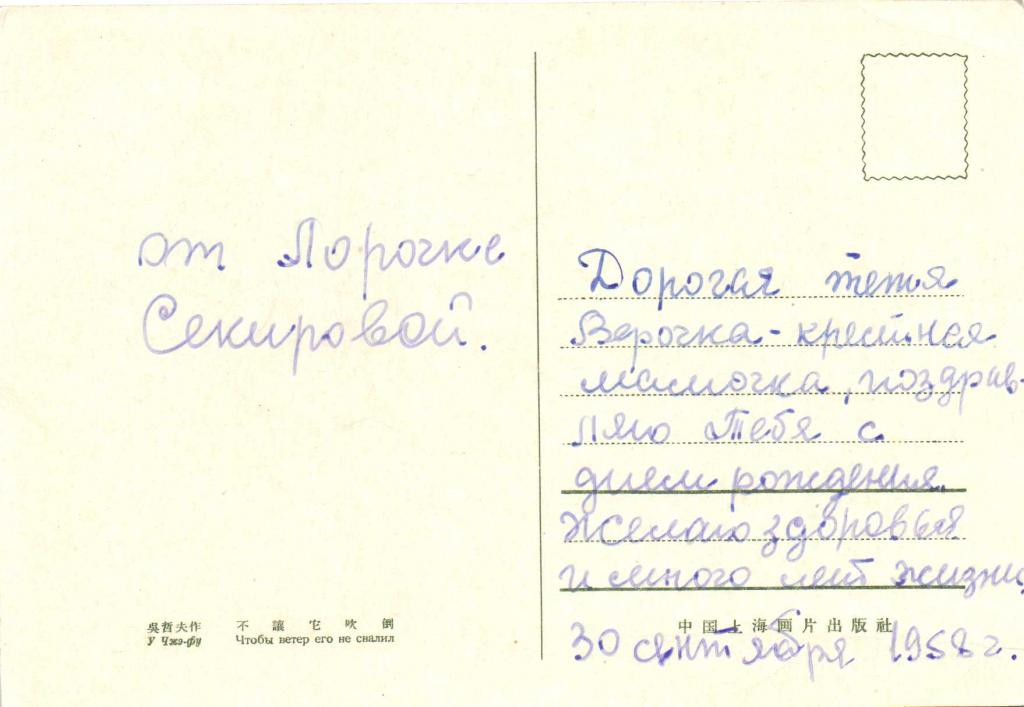 от Лорочке
Секировой.
吳哲夫作 不讓它吹倒
У Чжэ-фу Чтобы ветер его не свалил
Дорогая тетя
Верочка - крестная
мамочка, поздрав-
ляю Тебя с
днем рождения.
Желаю здоровья
и много лет жизни,
中国上海画片出版社
30 сентября 1958 г.